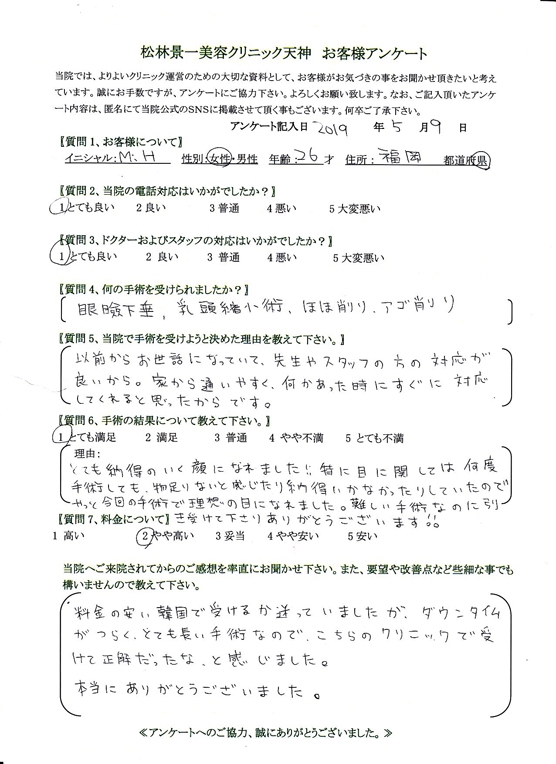 松林景一美容クリニック天神　お客様アンケート
当院では、よりよいクリニック運営のための大切な資料として、お客様がお気づきの事をお聞かせ頂きたいと考え
ています。誠にお手数ですが、アンケートにご協力下さい。よろしくお願い致します。なお、ご記入頂いたアンケ
ート内容は、匿名にて当院公式のSNSに掲載させて頂く事もございます。何卒ご了承下さい。
アンケート記入日 2019 年 5 月 9 日
〖質問 1、お客様について〗
イニシャル：M.H 性別：女性・男性 年齢：26 才 住所：福岡 都道府県
〖質問 2、当院の電話対応はいかがでしたか？〗
1 とても良い 2 良い 3 普通 4 悪い 5 大変悪い
〖質問 3、ドクターおよびスタッフの対応はいかがでしたか？〗
1 とても良い 2 良い 3 普通 4 悪い 5 大変悪い
〖質問 4、何の手術を受けられましたか？〗
眼瞼下垂，乳頭縮小術，ほほ削り．アゴ削り
〖質問 5、当院で手術を受けようと決めた理由を教えて下さい。〗
以前からお世話になっていて、先生やスタッフの方の対応が
良いから。家から通いやすく、何かあった時にすぐに対応
してくれると思ったからです。
〖質問 6、手術の結果について教えて下さい。〗
1 とても満足 2 満足 3 普通 4 やや不満 5 とても不満
理由：
とても納得のいく顔になれました!! 特に目に関しては何度
手術しても、物足りないと感じたり納得いかなかったりしていたので
やっと今回の手術で理想の目になれました。難しい手術なのに引
き受けて下さりありがとうございます!!
〖質問 7、料金について〗
1 高い 2 やや高い 3 妥当 4 やや安い 5 安い
当院へご来院されてからのご感想を率直にお聞かせ下さい。また、要望や改善点など些細な事でも
構いませんので教えて下さい。
料金の安い韓国で受けるか迷っていましたが、ダウンタイム
がつらく、とても長い手術なので、こちらのクリニックで受
けて正解だったな、と感じました。
本当にありがとうございました。
≪アンケートへのご協力、誠にありがとうございました。≫